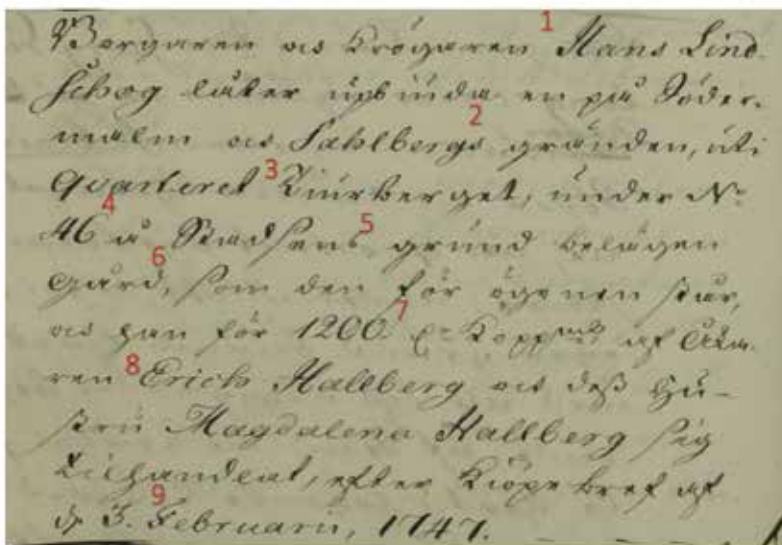 Borgaren och Krögaren 1 Hans Lind-
schog låter upbiuda en på Söder- 2
malm och Sahlbergs gränden, uti
Qvarteret 3 Tiurberget, under No
4 46 å Stadsens 5 grund belägen
6 gård, som den för ögonen står,
och han för 1200. 7 Dr Koppmt af Åka-
ren 8 Erich Hallberg och dess Hu-
stru Magdalena Hallberg sig
tilhandlat, efter Kiöpebref af
d. 3. 9 Februarii, 1747.